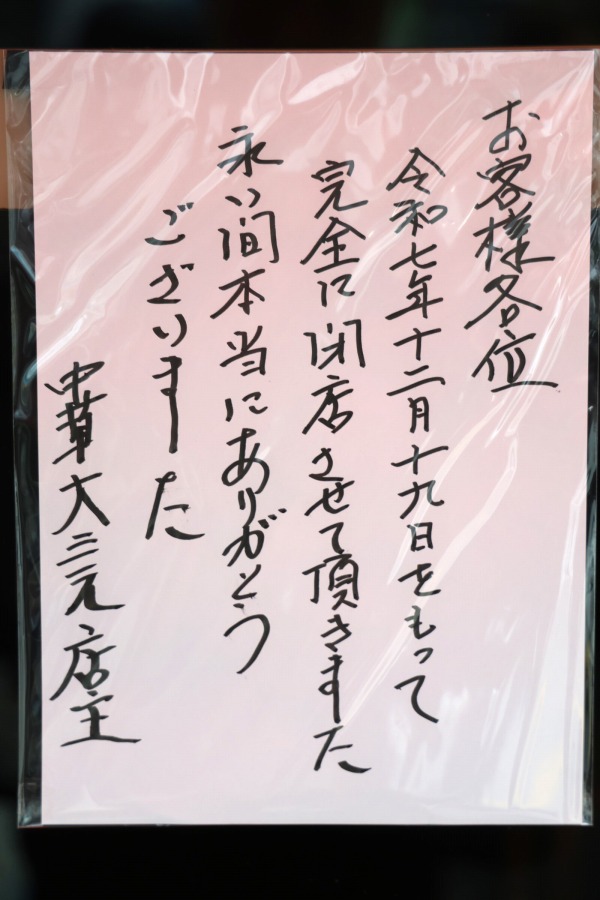 お客様各位
令和七年十二月十九日をもって
完全に閉店させて頂きました
永い間本当にありがとう
ございました
中華大三元店主